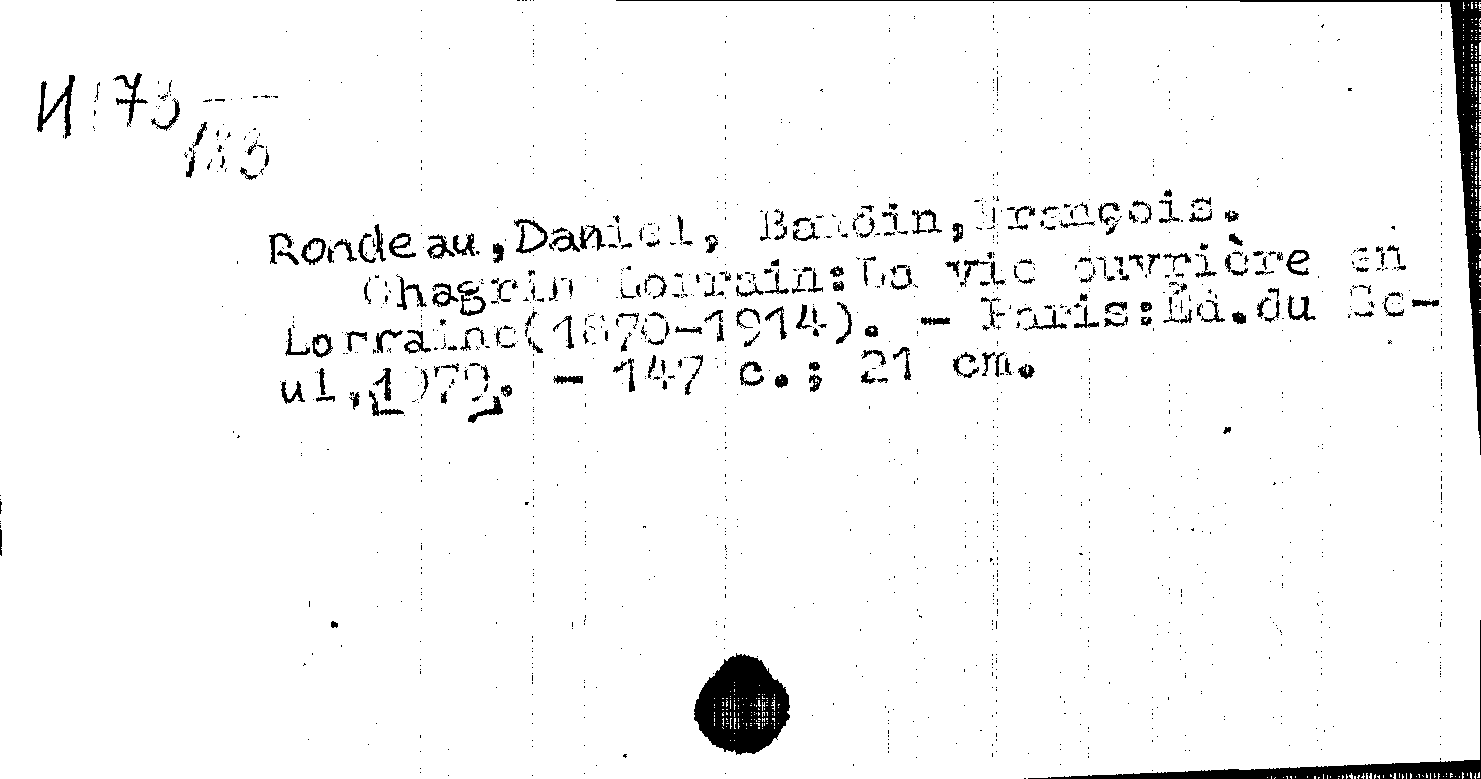 И173
183
Rondeau,Daniel, Baudin,François.
Chagrin Lorrain:La vie ouvrière en
Lorraine(1870-1914). - Paris:Éd.du Se-
ul,1979. - 147 c.; 21 cm.